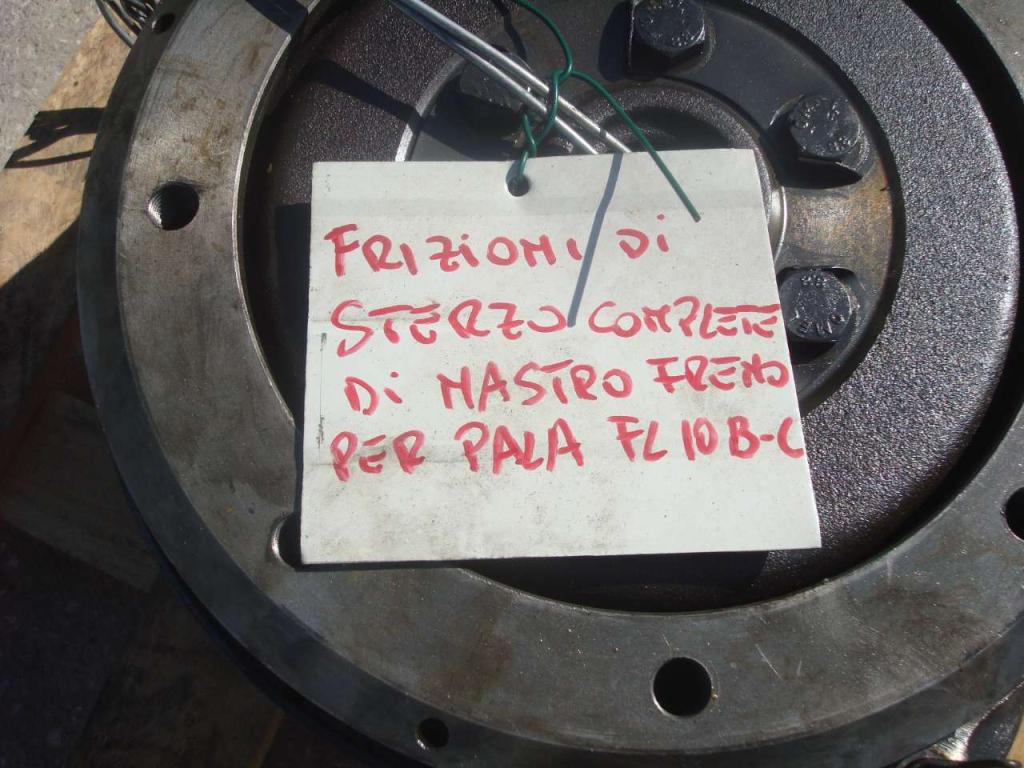 FRIZIONI DI
STERZO COMPLETE
DI NASTRO FRENO
PER PALA FL 10 B-C